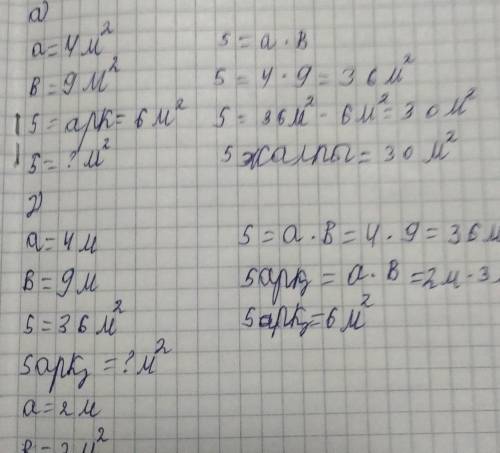 а)
a = 4 м²
в = 9 м²
S = арк = 6 м²
S = ? м²
S = a · в
S = 4 · 9 = 36 м²
S = 36 м² - 6 м² = 30 м²
S жалпы = 30 м²
2)
a = 4 м
в = 9 м
S = 36 м²
Sаркз = ? м²
a = 2 м
в = 3 м²
S = a · в = 4 · 9 = 36 м
Sаркз = a · в = 2 м · 3
Sаркз = 6 м²